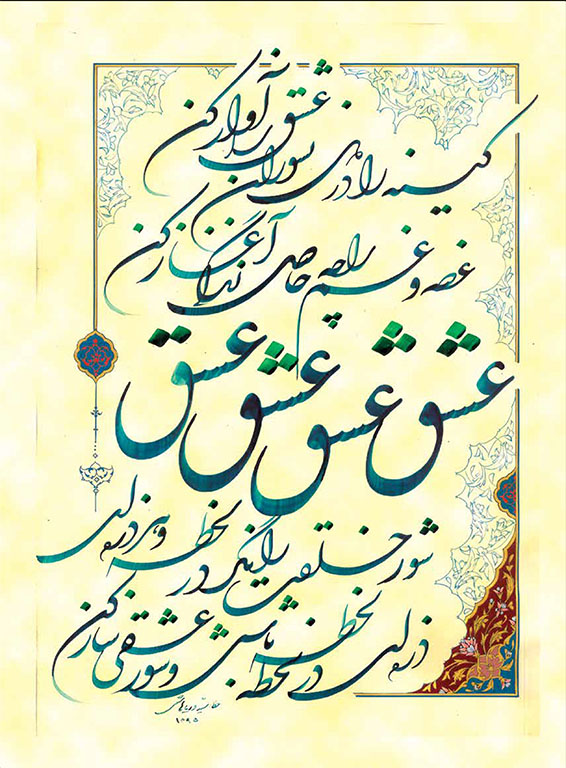 کینه را در هم بسوزان عشق را آواز کن
غصه و غم را چه حاصل زندگی آغاز کن
عشق عشق عشق عشق
شور خلقت را نگر در لحظه و هر ذره ای
ذره ای در لحظه لحظه باش و شور عشقی ساز کن
۱۳۹۵